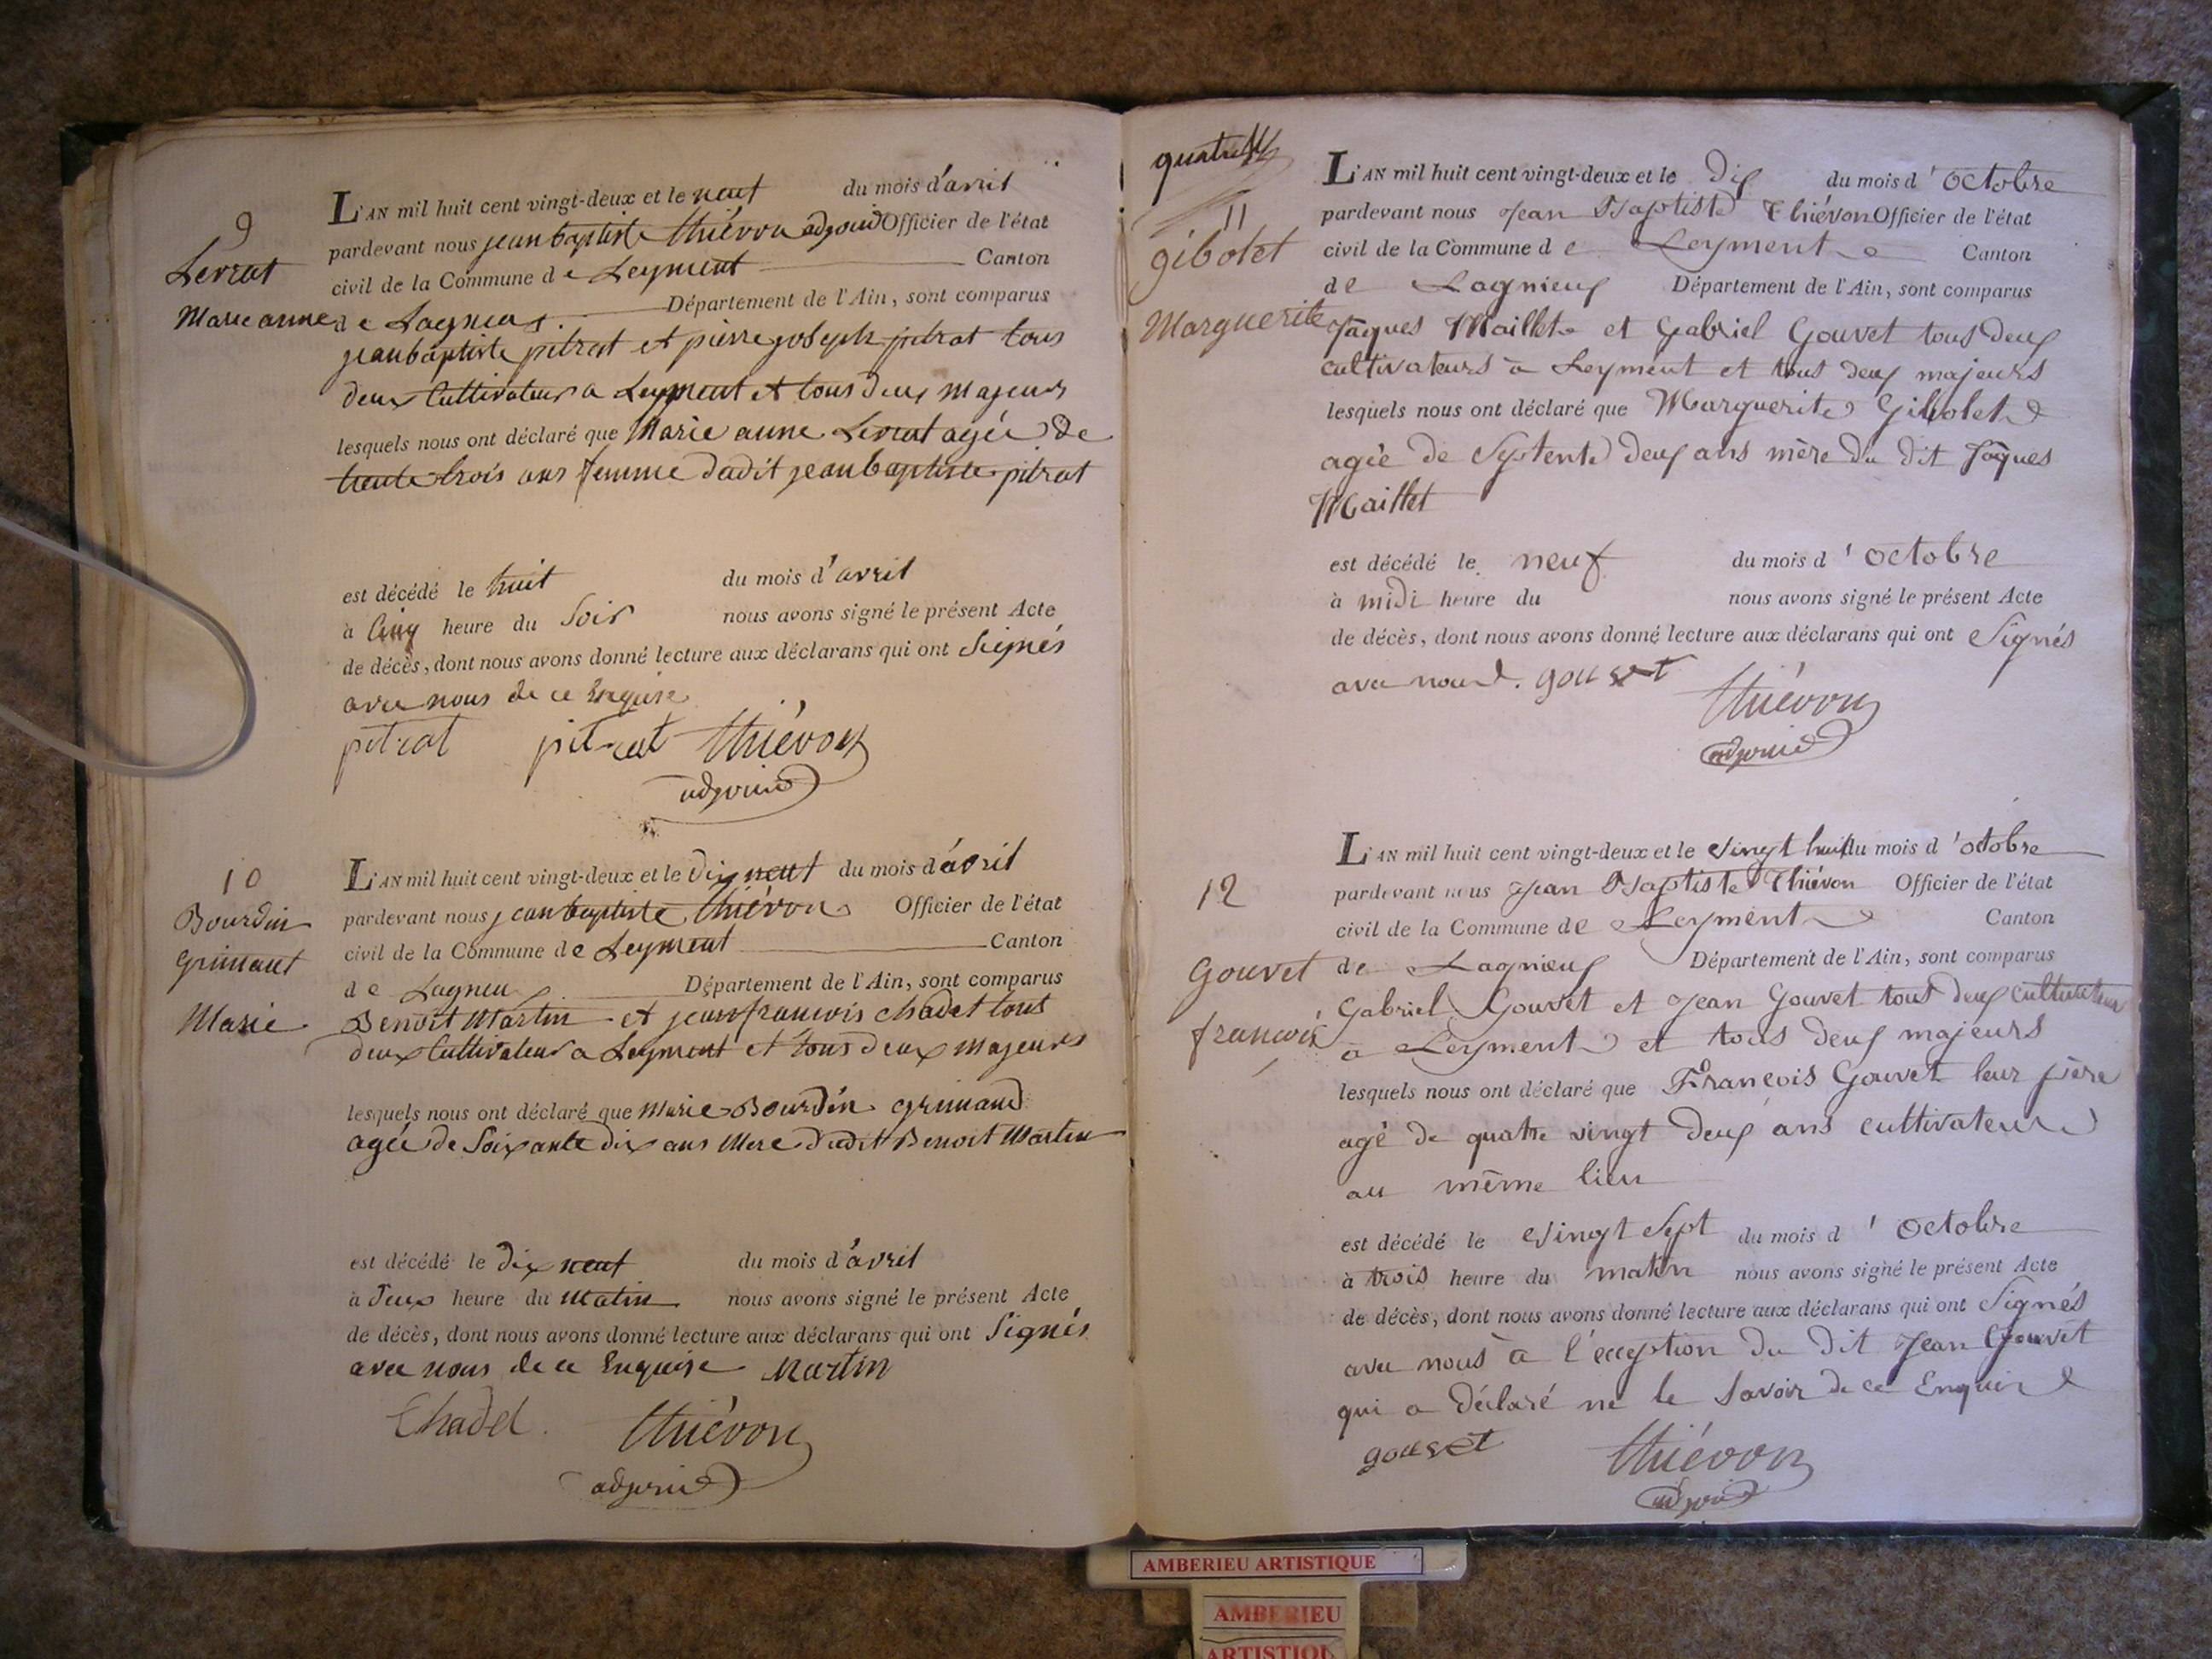 9
Levrat
Marie anne
L'AN mil huit cent vingt-deux et le neuf du mois d'avril
pardevant nous jean baptiste thiévon adjoint Officier de l'état
civil de la Commune de Leyment Canton
de Lagnieu Département de l'Ain, sont comparus
jean baptiste pitrat et pierre joseph pitrat tous
deux Cultivateurs a Leyment et tous deux majeurs
lesquels nous ont déclaré que Marie anne Levrat agée de
trente trois ans femme dudit jean baptiste pitrat
est décédé le huit du mois d'avril
à Cinq heure du Soir nous avons signé le présent Acte
de décès, dont nous avons donné lecture aux déclarans qui ont Signés
avec nous de ce Enquis
pitrat pitrat thiévon
adjoint
10
Bourdin
grimaut
Marie
L'AN mil huit cent vingt-deux et le dix neuf du mois d'avril
pardevant nous jean baptiste thiévon Officier de l'état
civil de la Commune de Leyment Canton
de Lagnieu Département de l'Ain, sont comparus
Benoit Martin et jean françois chadet tous
deux Cultivateur a Leyment et tous deux Majeurs
lesquels nous ont déclaré que Marie Bourdin grimaud
agée de Soixante dix ans Mere dudit Benoit Martin
est décédé le dix neuf du mois d'avril
à Deux heure du Matin nous avons signé le présent Acte
de décès, dont nous avons donné lecture aux déclarans qui ont Signés
avec nous de ce Enquise Martin
Chadel thiévon
adjoint
quatre
11
gibolet
Marguerite
L'AN mil huit cent vingt-deux et le dix du mois d'Octobre
pardevant nous Jean Baptiste Thiévon Officier de l'état
civil de la Commune de Leyment Canton
de Lagnieux Département de l'Ain, sont comparus
Jâques Maillet et Gabriel Gouvet tous deux
cultivateurs à Leyment et tous deux majeurs
lesquels nous ont déclaré que Marguerite Gibolet
agée de Septente deux ans mère du dit Jâques
Maillet
est décédé le neuf du mois d'Octobre
à midi heure du nous avons signé le présent Acte
de décès, dont nous avons donné lecture aux déclarans qui ont Signés
avec nous. gouvet
thiévon
adjoint
12
Gouvet
françois
L'AN mil huit cent vingt-deux et le vingt huit du mois d'octobre
pardevant nous Jean Baptiste Thiévon Officier de l'état
civil de la Commune de Leyment Canton
de Lagnieux Département de l'Ain, sont comparus
Gabriel Gouvet et Jean Gouvet tous deux cultivateurs
à Leyment et tous deux majeurs
lesquels nous ont déclaré que François Gouvet leur père
agé de quatre vingt deux ans cultivateur
au même lieu
est décédé le vingt Sept du mois d'Octobre
à trois heure du matin nous avons signé le présent Acte
de décès, dont nous avons donné lecture aux déclarans qui ont Signés
avec nous à l'eception du dit Jean Gouvet
qui a déclaré ne le Savoir de ce Enquis
gouvet thiévon
adjoint
AMBERIEU ARTISTIQUE
AMBERIEU
ARTISTIQU